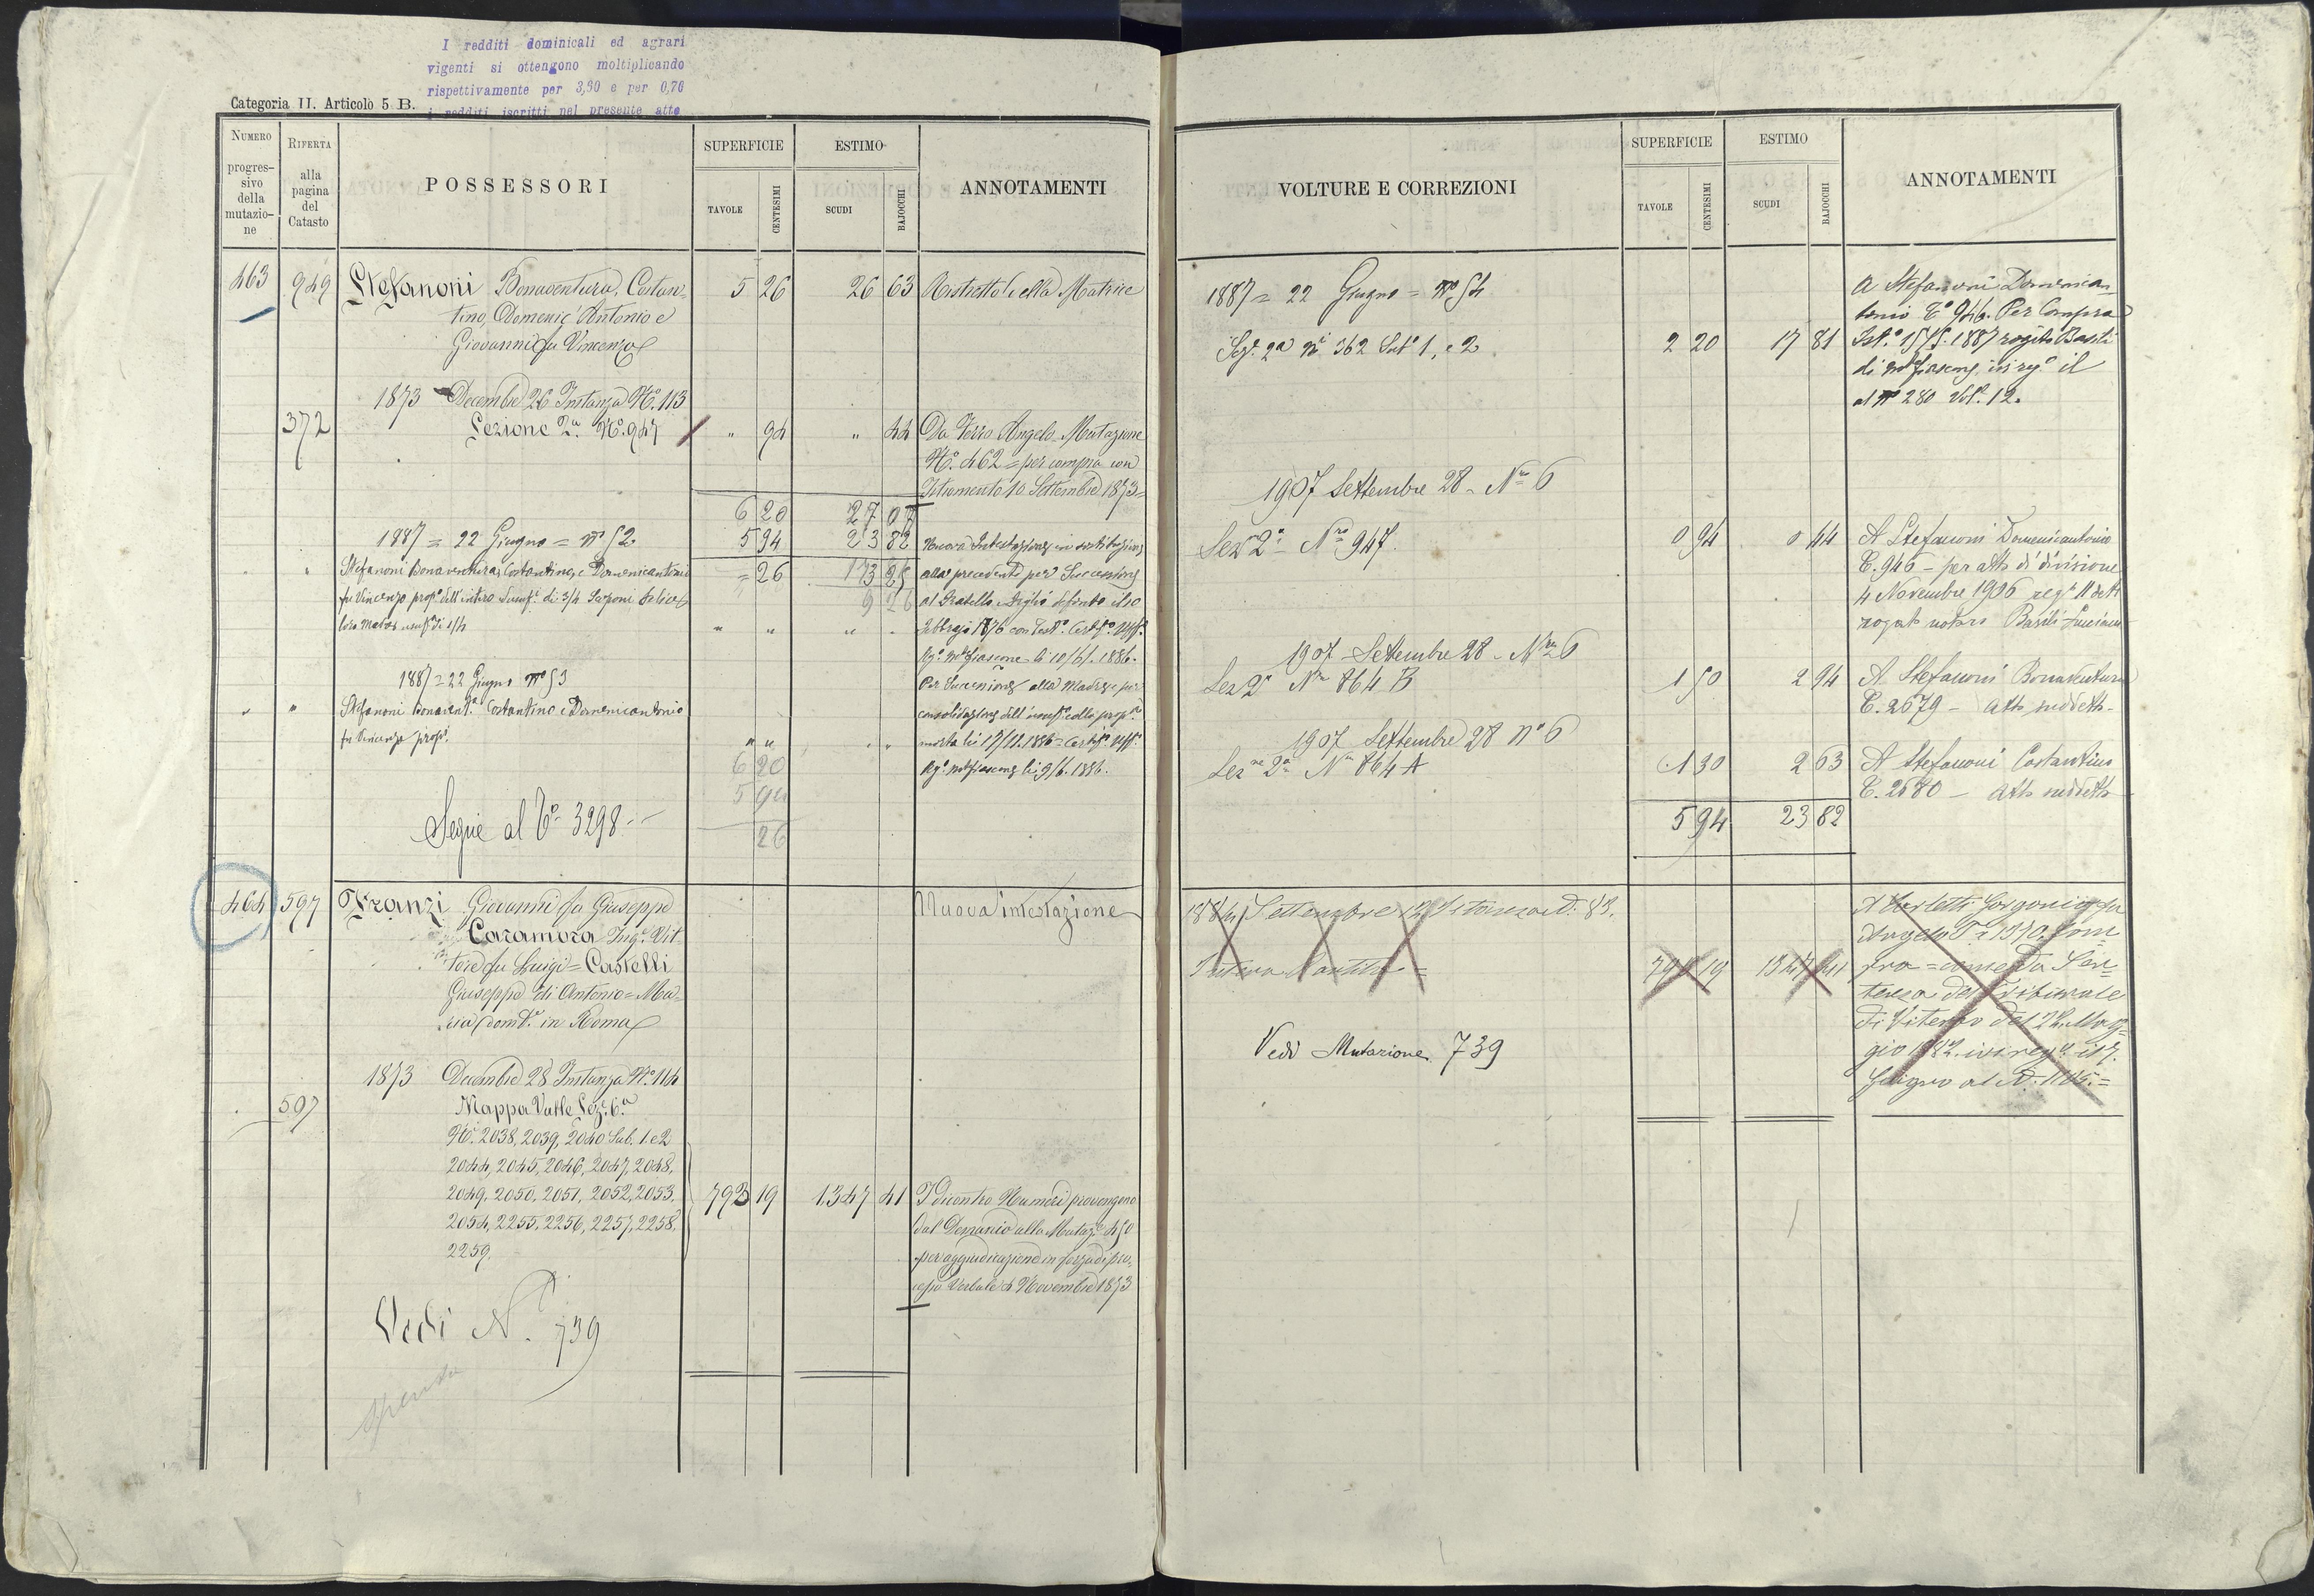 I redditi dominicali ed agrari
vigenti si ottengono moltiplicando
rispettivamente per 3,30 e per 0,76
i redditi iscritti nel presente atto
Categoria II. Articolo 5 B.
NUMERO progressivo della mutazione
RIFERTA alla pagina del Catasto
POSSESSORI
SUPERFICIE
TAVOLE CENTESIMI
ESTIMO
SCUDI BAJOCCHI
ANNOTAMENTI
463 949 Stefanoni Bonaventura, Costan= 5 26 26 63 Ristretto della Matrice
tino, Domenic' Antonio e
Giovanni fu Vincenzo
1873 Decembre 26 Instanza N.° 113
372 Sezione 2.a N.° 947 " 94 " 44 Da Terra Angelo Mutazione
N.° 462 = per compra con
Istromento 10 Settembre 1873=
6 20 27 07
1887 = 22 Giugno = N° 52 5 94 23 82 Nuova Intestazione in sostituzione
Stefanoni Bonaventura, Costantino, e Domenicantonio = 26 alla precedente per Successione
fu Vincenzo prop.i dell'intero di 3/4 al fratello
loro Madre usuf.a di 1/4 " " " " Febbrajo 1876 con Certif.o Uff.
li 10/6/. 1886.
1887 = 22 Giugno N° 53 Per Successione alla Madre e per
Stefanoni Bonavent.a Costantino e Domenicantonio consolidazione dell'usuf.o colla prop.a
fu Vincenzo prop.i " " " " morta li 17/11.1886 = Certif.o Uff.
6 20 li 9/6.1886.
5 94
Segue al T.° 3298.--
26
464 597 Franzi Giovanni fu Giuseppe Nuova intestazione
Caramora Ing.e Vit=
tore fu Luigi = Castelli
Giuseppe di Antonio = Ma=
ria dom.ti in Roma
1873 Decembre 28 Instanza N.° 114
597 Mappa Valle Sez.e 6.a
N.i 2038, 2039, 2040 Sub. 1. e 2
2044, 2045, 2046, 2047, 2048,
2049, 2050, 2051, 2052, 2053, 793 19 1347 41 I dicontro Numeri provengono
2054, 2255, 2256, 2257, 2258, dal Demanio alla Mutaz.e 450
2259, per aggiudicazione in forza di pro=
cesso Verbale 4 Novembre 1873
Vedi N.° 739
VOLTURE E CORREZIONI
SUPERFICIE
TAVOLE CENTESIMI
ESTIMO
SCUDI BAJOCCHI
ANNOTAMENTI
1887 = 22 Giugno = N° 54 A Stefanoni Domenican=
tonio T.° 946. Per Compra
Sez.e 2a N.i 362 Sub.i 1, e 2 2 20 17 81 1887 rogito Basili
il
al N° 280 Vol. 12.
1907 Settembre 28 - N.ro 6
Sez.e 2a - N.ro 947. 0 94 0 44 A Stefanoni Domenicantonio
T. 946 - per atto di divisione
4 Novembre 1906
rogato notaro Basili
1907 Settembre 28 - N.ro 6
Sez 2a N.ro 864 B 1 50 2 94 A Stefanoni Bonaventura
T. 2679 - atto suddetto-
1907 Settembre 28 N° 6
Sez.ne 2a N.ro 864 A 1 30 2 63 A Stefanoni Costantino
T. 2680 - atto suddetto
5 94 23 82
1884 Settembre 12 Istanza N: 83. A Barletti Gorgonio fu
Angelo T.= 1370. Com=
Intera Partita = 793 19 1347 41 pra = come da Sen=
tenza del Tribunale
di Viterbo del 24 Mag=
gio 1882. in reg.a il 7.
Giugno al N. 1105.=
Vedi Mutazione 739